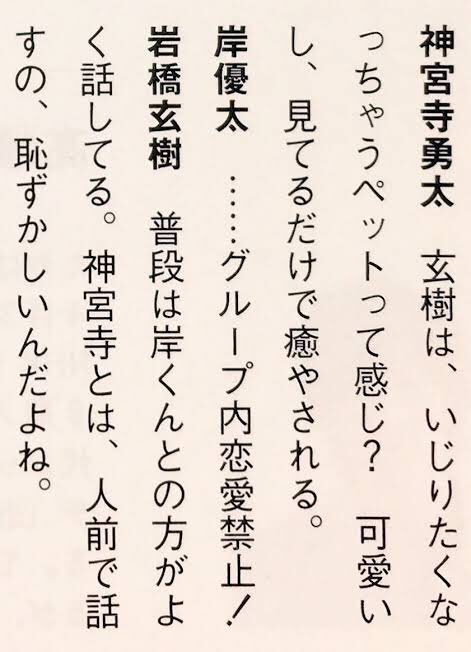 神宮寺勇太　玄樹は、いじりたくな
っちゃうペットって感じ？　可愛い
し、見てるだけで癒やされる。
岸優太　……グループ内恋愛禁止！
岩橋玄樹　普段は岸くんとの方がよ
く話してる。神宮寺とは、人前で話
すの、恥ずかしいんだよね。